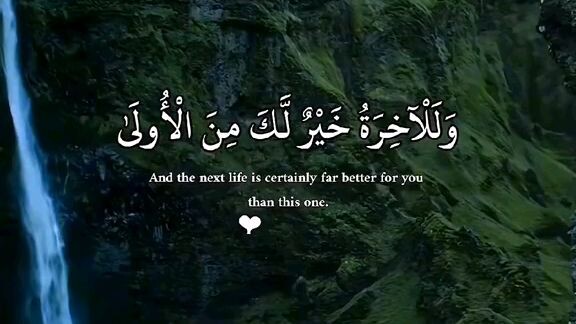 وَلَلْآخِرَةُ خَيْرٌ لَّكَ مِنَ الْأُولَىٰ
And the next life is certainly far better for you
than this one.